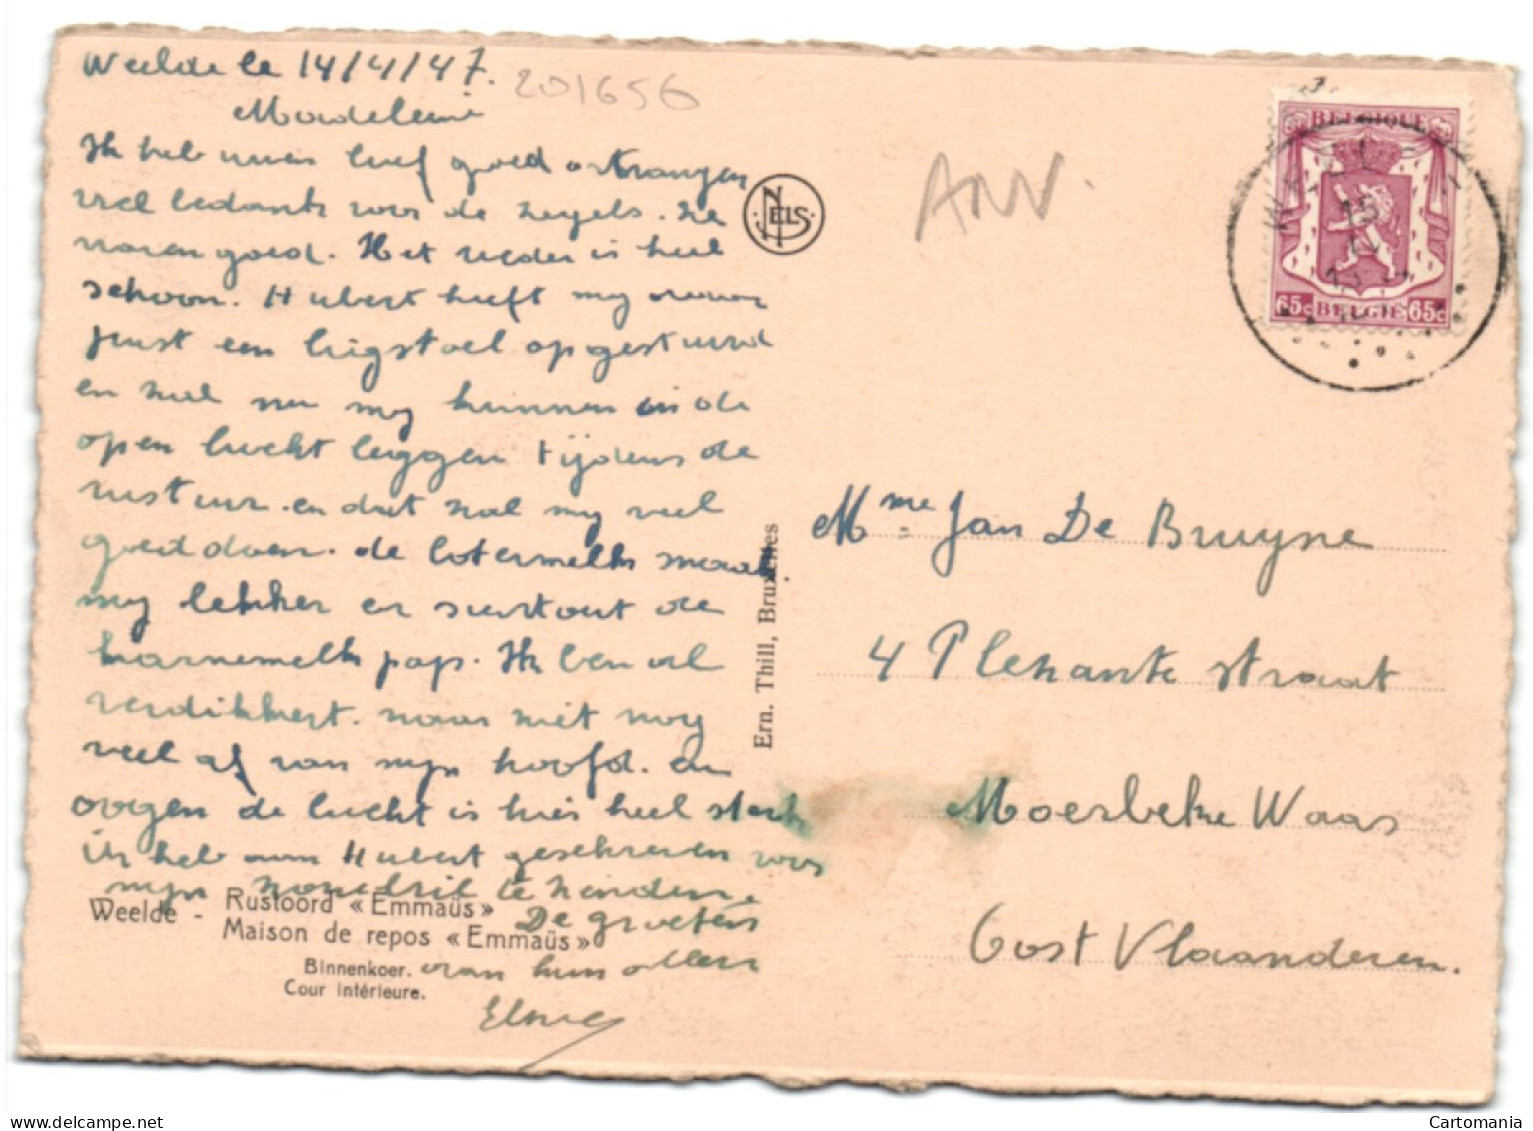 Weelde le 14/4/47.
201656
Madeleine
Ik heb uwen brief goed ontvangen
veel bedankt voor de zegels. Ze
waren goed. Het weder is heel
schoon. Hubert heeft my
juist een ligstoel opgestuurd
en zal nu my kunnen in de
open lucht leggen tijdens de
rustuur. en dat zal my veel
goed doen. de botermelk smaakt
my lekker en surtout de
karnemelk pap. Ik ben al
verdikkert. maar niet nog
veel af van mijn hoofd. En
de lucht is hier heel sterk
Ik heb aan Hubert geschreven voor
mijn te zenden.
De groeten
van hun allen
Weelde - Rustoord « Emmaüs »
Maison de repos « Emmaüs »
Binnenkoer.
Cour intérieure.
NELS
Ern. Thill, Bruxelles
ANV.
BELGIQUE
65c BELGIE 65c
15
Mme Jan De Bruyne
4 straat
Moerbeke Waas
Oost Vlaanderen.
Cartomania
delcampe.net